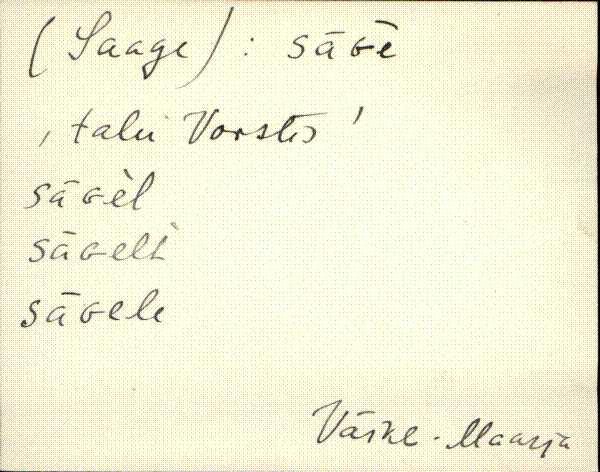 (Saage) : sāɢè
‚ talu Vorstis '
sāɢèl
sāɢelt
sāɢele
Väike-Maarja